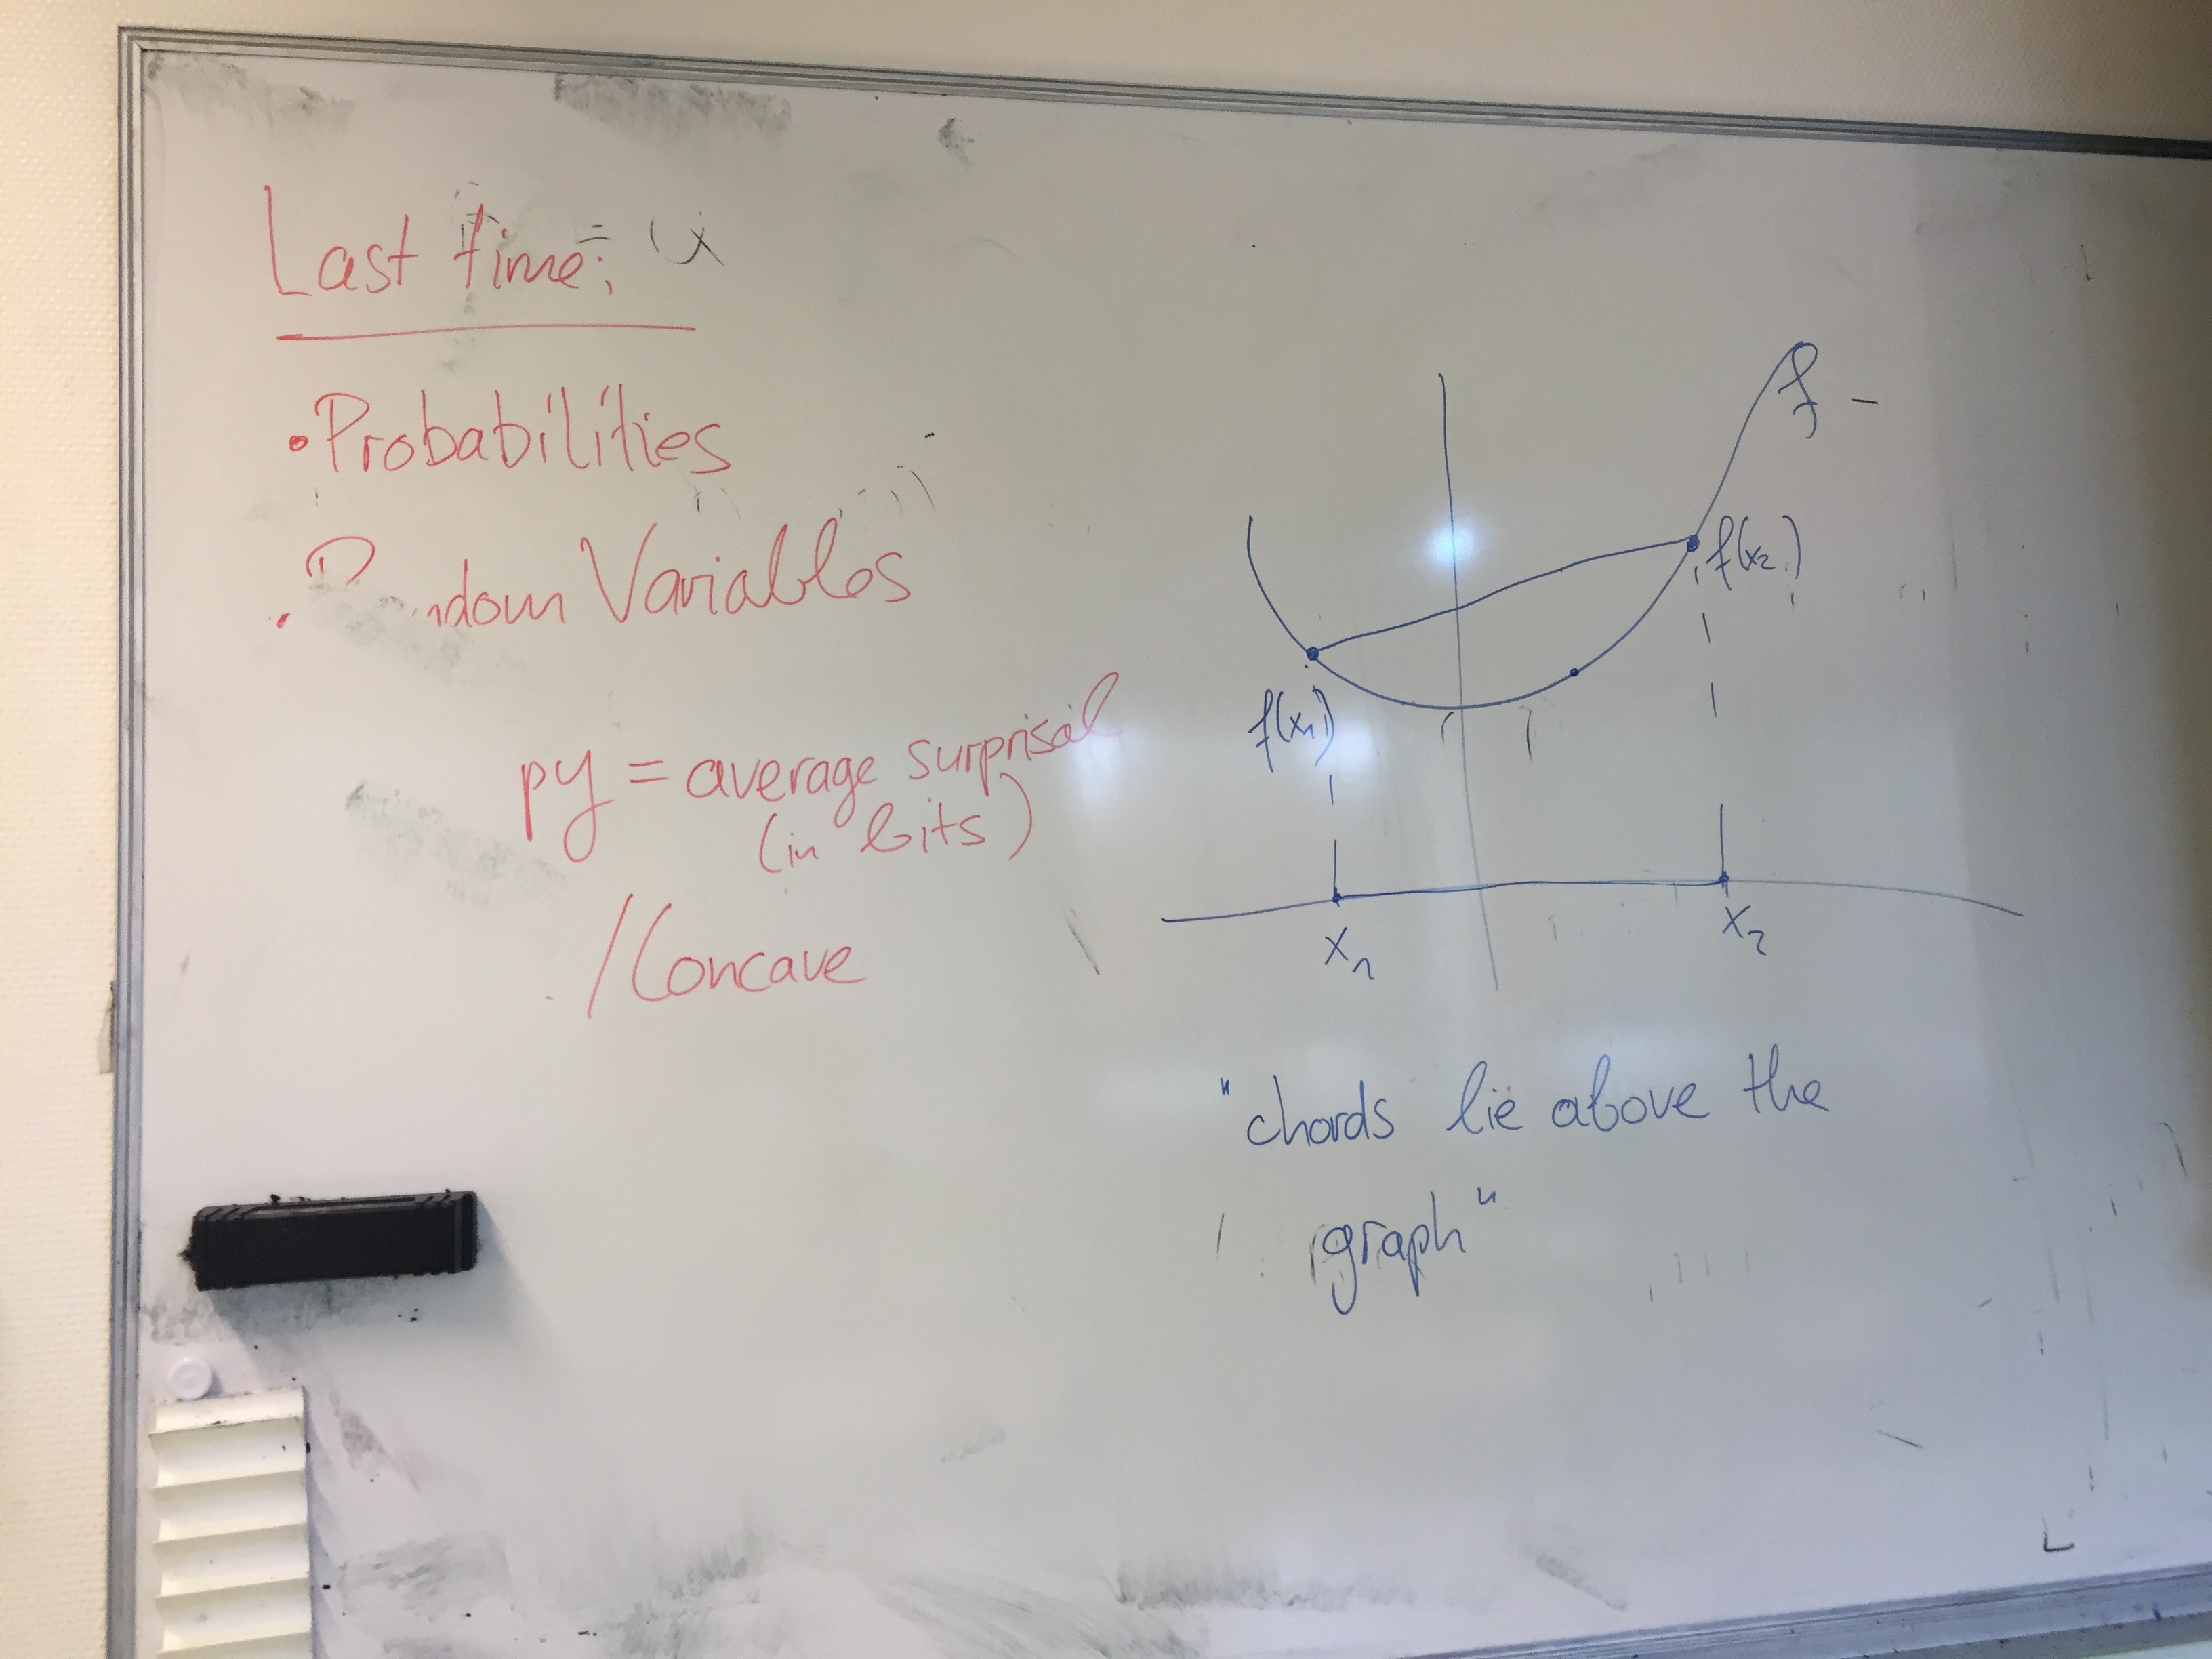 Last time:
• Probabilities
• Variables
py = average surprisal
(in bits)
/Concave
f
f(x₂)
f(x₁)
x₁
x₂
"chords lie above the
graph"